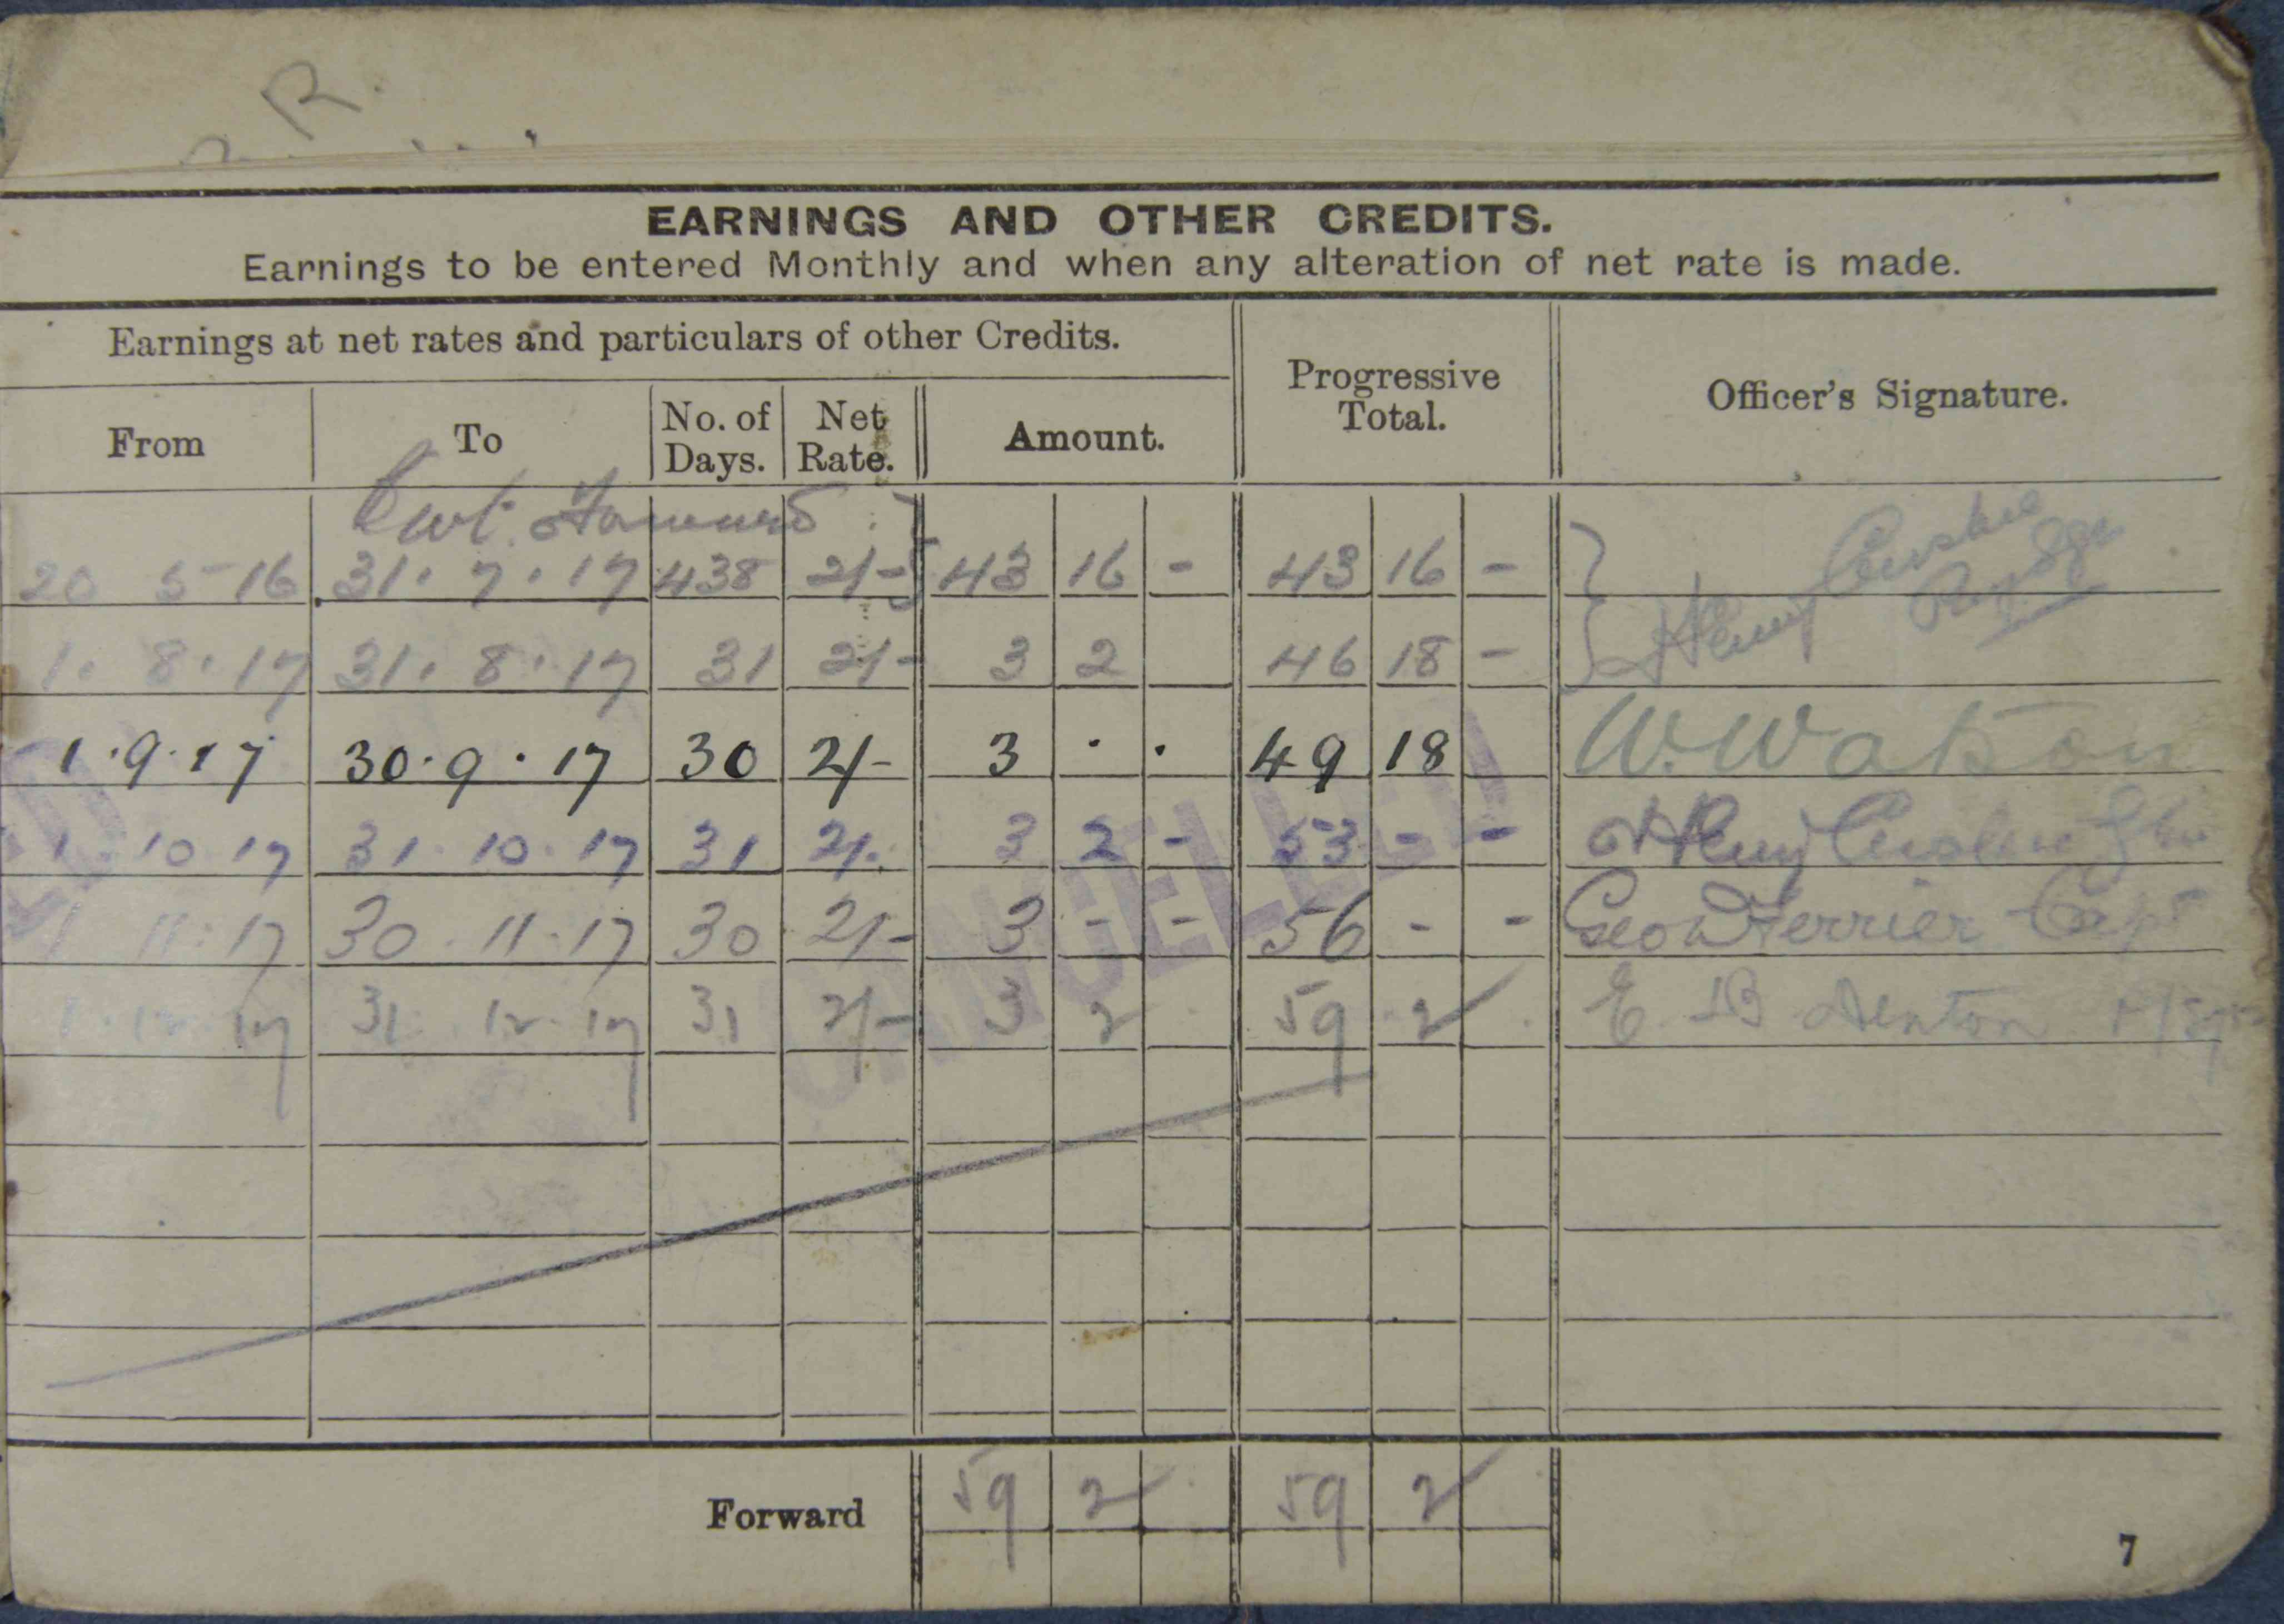 R.
EARNINGS AND OTHER CREDITS.
Earnings to be entered Monthly and when any alteration of net rate is made.
Earnings at net rates and particulars of other Credits. Progressive Total. Officer's Signature.
From To No. of Days. Net Rate. Amount.
20 5 16 31. 7. 17 438 2/- 43 16 - 43 16 - Henry
1. 8. 17 31. 8. 17 31 2/- 3 2 46 18 -
1.9.17 30.9.17 30 2/- 3 . . 49 18 W. Watson
1. 10 17 31. 10. 17 31 2/. 3 2 - 53 - - Henry
1 11. 17 30. 11. 17 30 2/- 3 - - 56 - - Geo W Ferrier Capt
1. 12. 17 31. 12. 17 31 2/- 3 2 59 2 E B Denton
CANCELLED
Forward 59 2 59 2
7